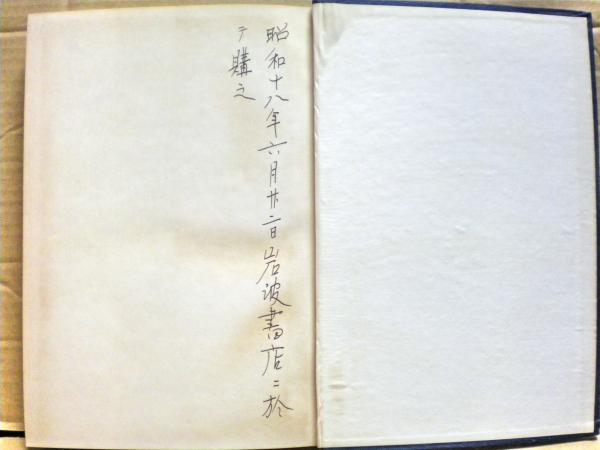 昭和十八年六月廿二日岩波書店ニ於
テ購之